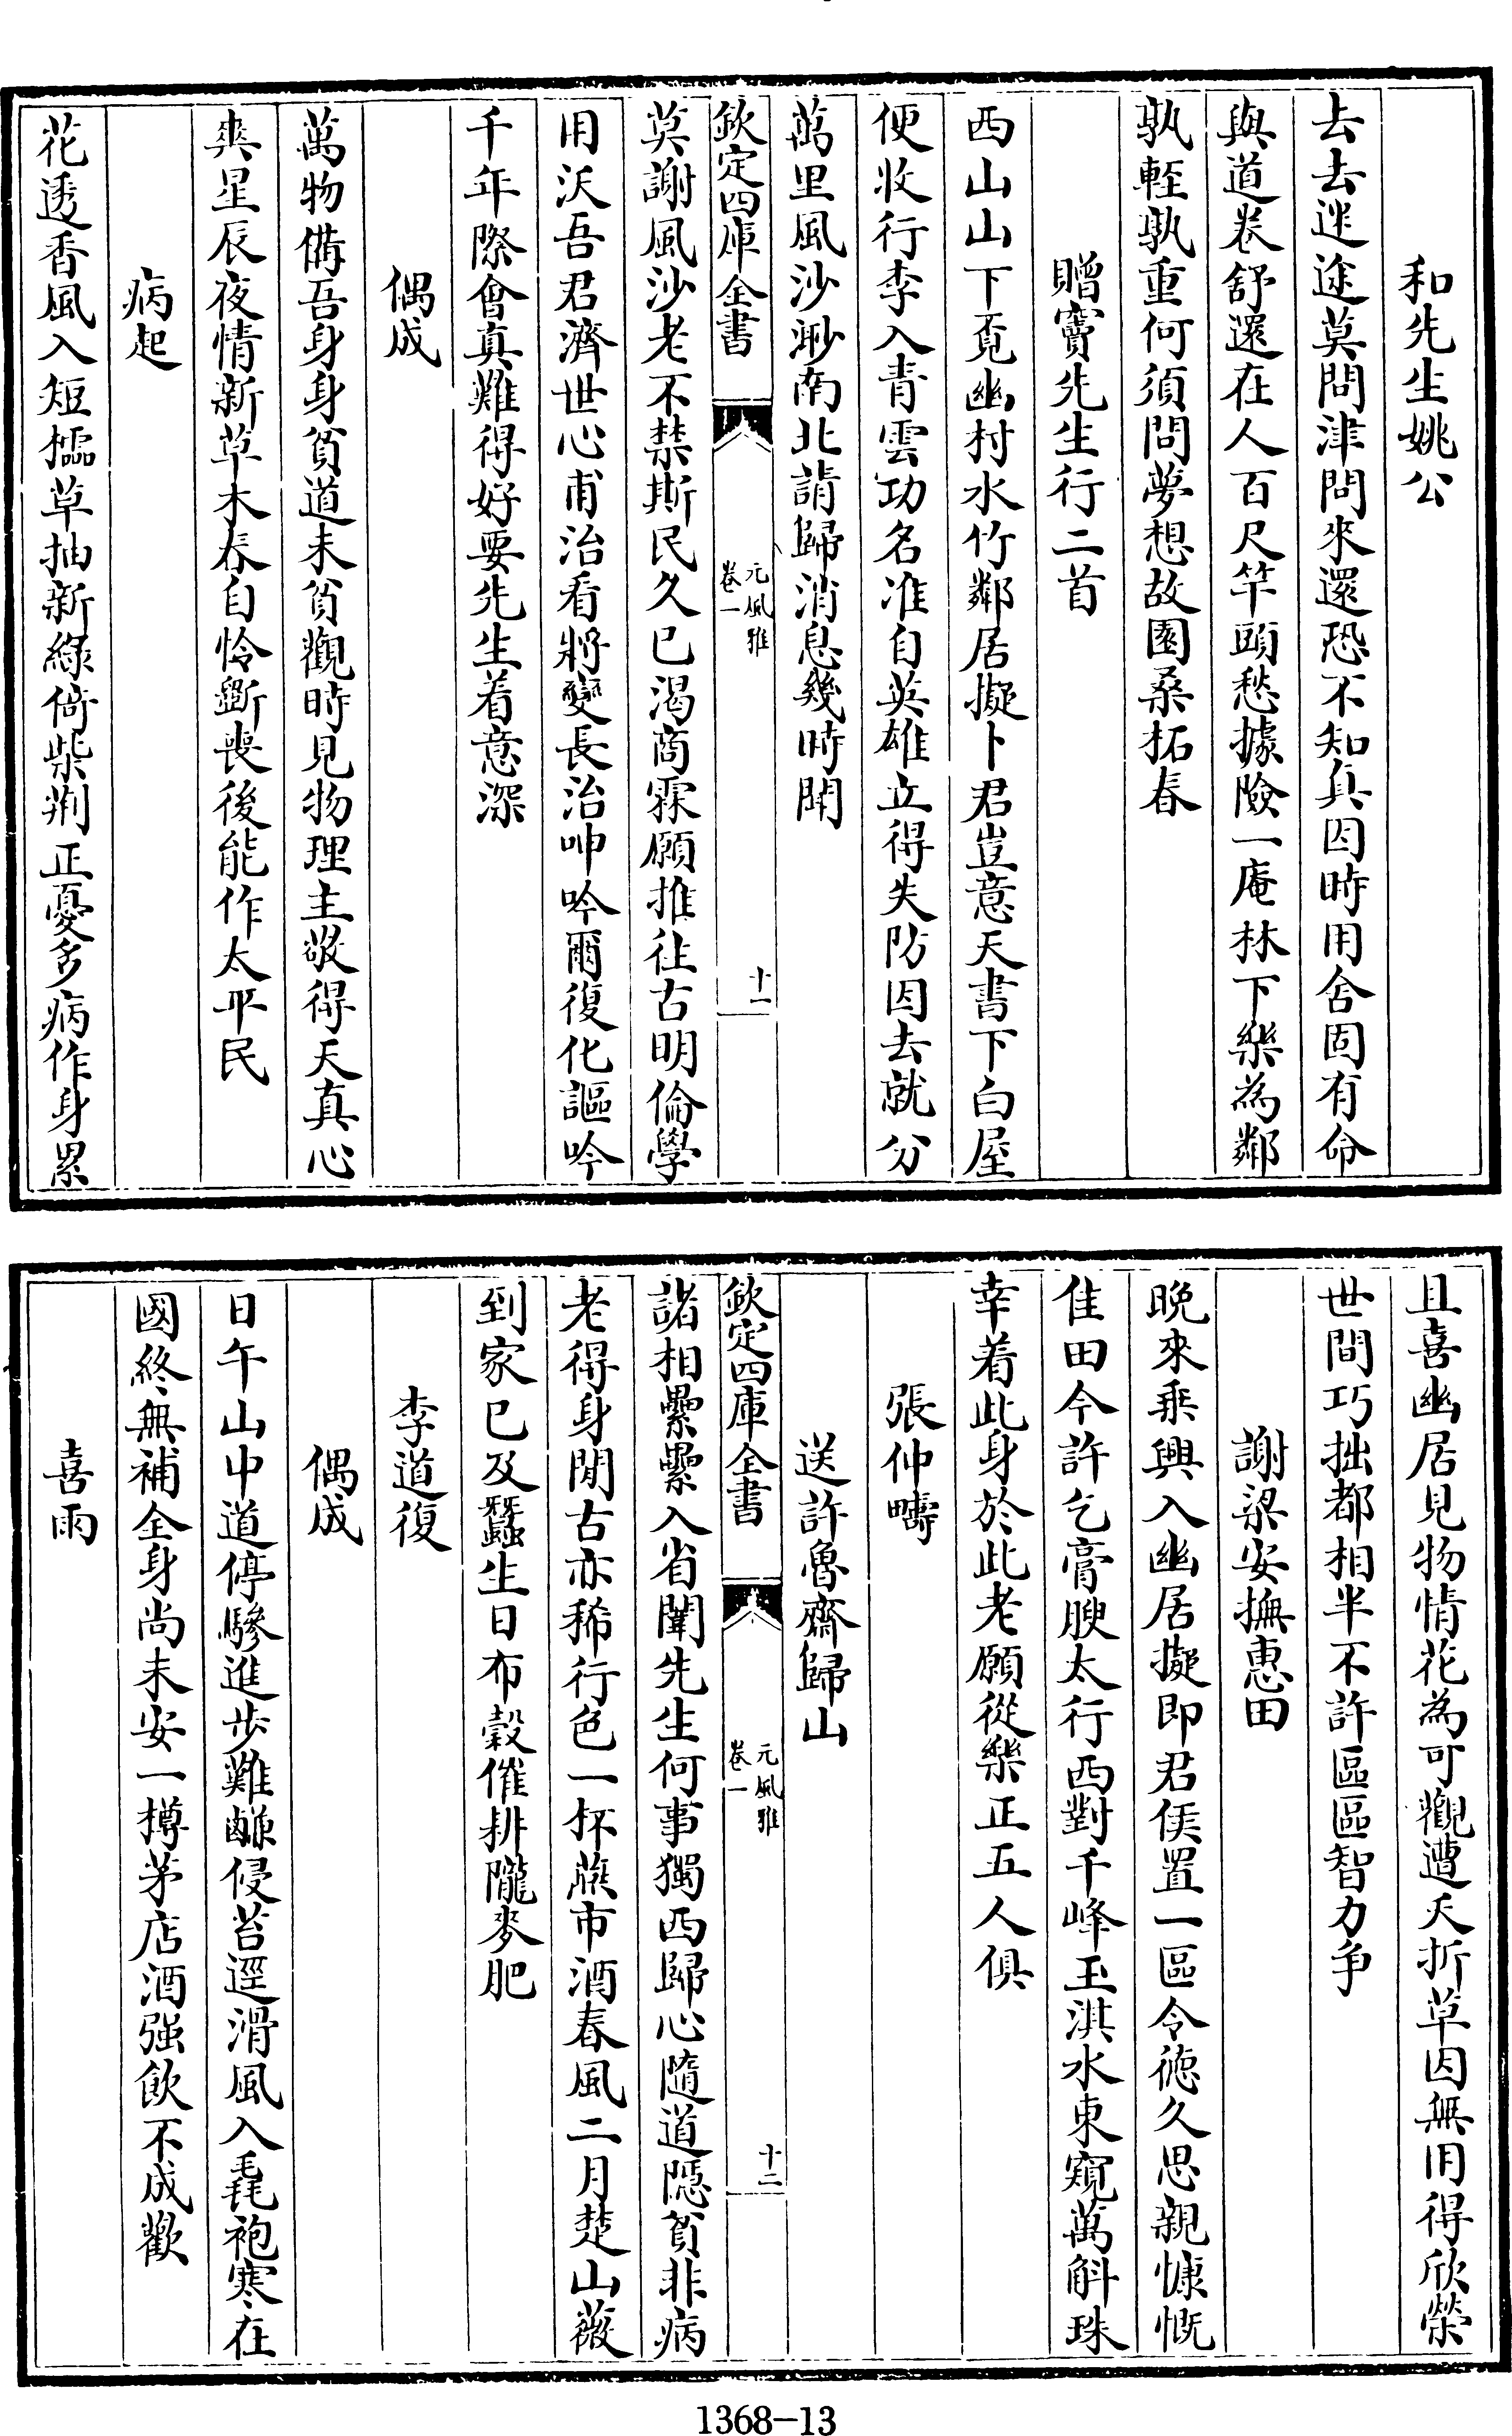 和先生姚公
去去迷途莫問津問來還恐不知真因時用舍固有命
與道卷舒還在人百尺竿頭愁據險一庵林下樂為鄰
孰輊孰重何須問夢想故園桑柘春
贈竇先生行二首
西山山下覔幽村水竹鄰居擬卜君豈意天書下白屋
便收行李入青雲功名准自英雄立得失防因去就分
萬里風沙渺南北請歸消息幾時聞
欽定四庫全書
元風雅
卷一
十一
莫謝風沙老不禁斯民久已渴商霖願推往古明倫學
用沃吾君濟世心甫治看將變長治呻吟爾復化謳吟
千年際會真難得好要先生着意深
偶成
萬物備吾身身貧道未貧觀時見物理主敬得天真心
爽星辰夜情新草木春自怜斵喪後能作太平民
病起
花透香風入短櫺草抽新綠倚柴荆正憂多病作身累
且喜幽居見物情花為可觀遭夭折草因無用得欣榮
世間巧拙都相半不許區區智力爭
謝梁安撫惠田
晩來乗興入幽居擬即君侯置一區令徳久思親慷慨
佳田今許乞膏腴太行西對千峰玉淇水東窺萬斛珠
幸着此身於此老願從樂正五人俱
張仲疇
送許魯齋歸山
欽定四庫全書
元風雅
卷一
十二
諸相纍纍入省闈先生何事獨西歸心隨道隠貧非病
老得身閒古亦稀行色一杯燕市酒春風二月楚山薇
到家已及蠶生日布穀催排隴麥肥
李道復
偶成
日午山中道停驂進步難巇侵苔逕滑風入毳袍寒在
國終無補全身尚未安一樽茅店酒强飲不成歡
喜雨
1368-13